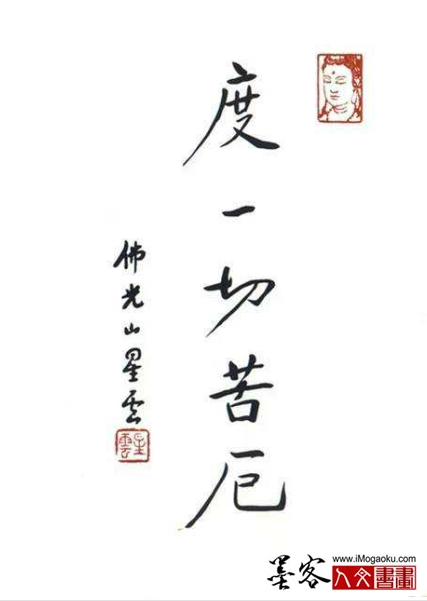 度一切苦厄
佛光山星云
星雲
www.iMogaoku.com
墨客
人文書畫